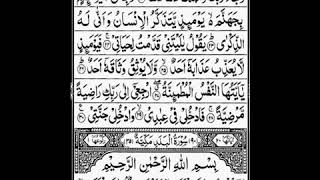 بِجَهَنَّمَ ۙ يَوْمَئِذٍ يَّتَذَكَّرُ الْاِنْسَانُ وَاَنّٰى لَهُ
الذِّكْرٰى ؕ۲۳ يَقُوْلُ يٰلَيْتَنِيْ قَدَّمْتُ لِحَيَاتِيْ ۚ۲۴ فَيَوْمَئِذٍ
لَّا يُعَذِّبُ عَذَابَهٗٓ اَحَدٌ ۙ۲۵ وَّلَا يُوْثِقُ وَثَاقَهٗٓ اَحَدٌ ؕ۲۶
يٰٓاَيَّتُهَا النَّفْسُ الْمُطْمَئِنَّةُ ۖ۲۷ ارْجِعِيْٓ اِلٰى رَبِّكِ رَاضِيَةً
مَّرْضِيَّةً ۚ۲۸ فَادْخُلِيْ فِيْ عِبٰدِيْ ۙ۲۹ وَادْخُلِيْ جَنَّتِيْ ۳۰
سُوْرَةُ الْبَلَدِ مَكِّيَّةٌ
بِسْمِ اللهِ الرَّحْمٰنِ الرَّحِيْمِ